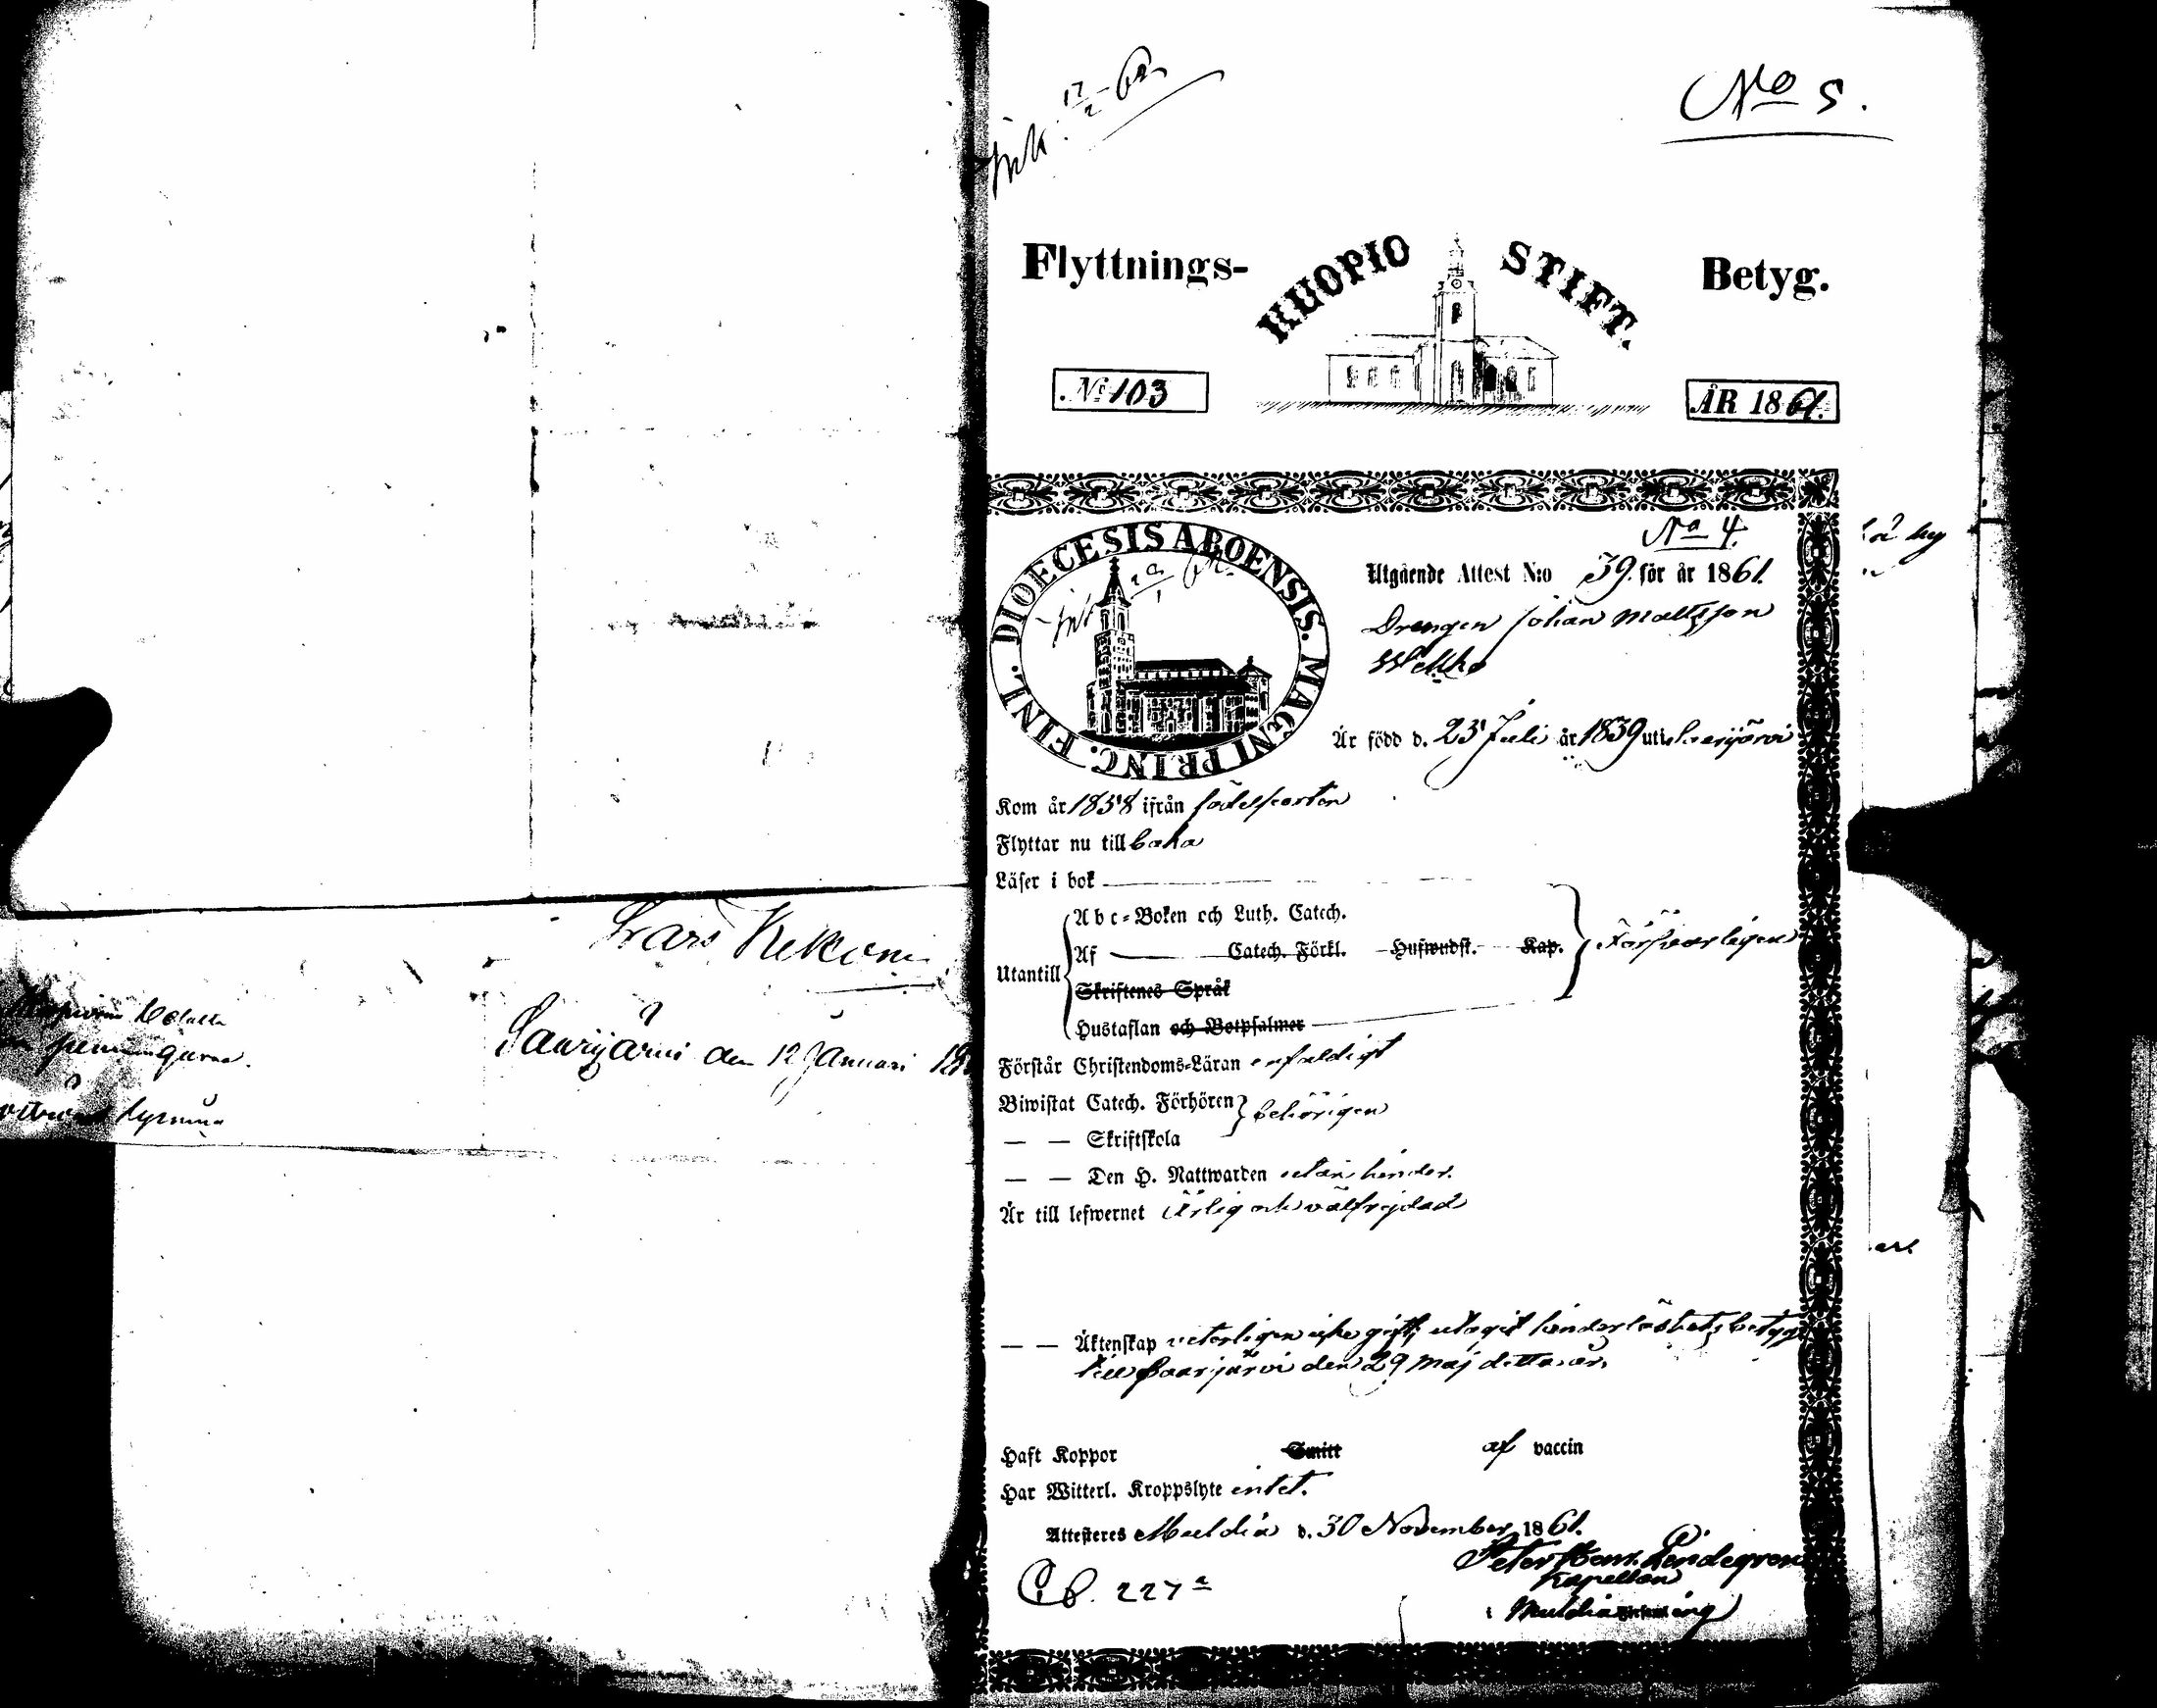 Lars Kekoni
Saarijärvi den 12 Januari
Ink. 17/2 62
No 5.
Flyttnings-
KUOPIO STIFT.
Betyg.
No 103
ÅR 1861.
DIOECESIS ABOENSIS. MAGNI PRINC. FINL.
No 4.
Utgående Attest N:o 39. för år 1861.
Drengen Johan Mattsson
Är född d. 25 Juli år 1839 uti Saarijärvi
Kom år 1858 ifrån födelseorten
Flyttar nu till baka
Läser i bok
Utantill
Abc-Boken och Luth. Catech.
Af Catech. Förkl. Hufwudst. Kap.
Försvarligen
Skriftenes Språk
Hustaflan och Botpsalmer
Förstår Christendoms-Läran enfaldigt
Biwistat Catech. Förhören
behörigen
— — Skriftskola
— — Den H. Nattwarden utan hinder.
Är till lefwernet Ärlig och välfrejdad
— — Äktenskap veterligen icke gift; utagit hinderlöshets betyg
till Saarijärvi den 29 Maj detta år.
Haft Koppor Smitt af vaccin
Har Witterl. Kroppslyte intet.
Attesteres Muldia d. 30 November 1861.
Lindegren
Kapellan
i Muldia
C b. 227 a